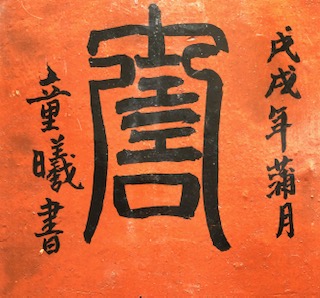 戊戌年蒲月
童曦書